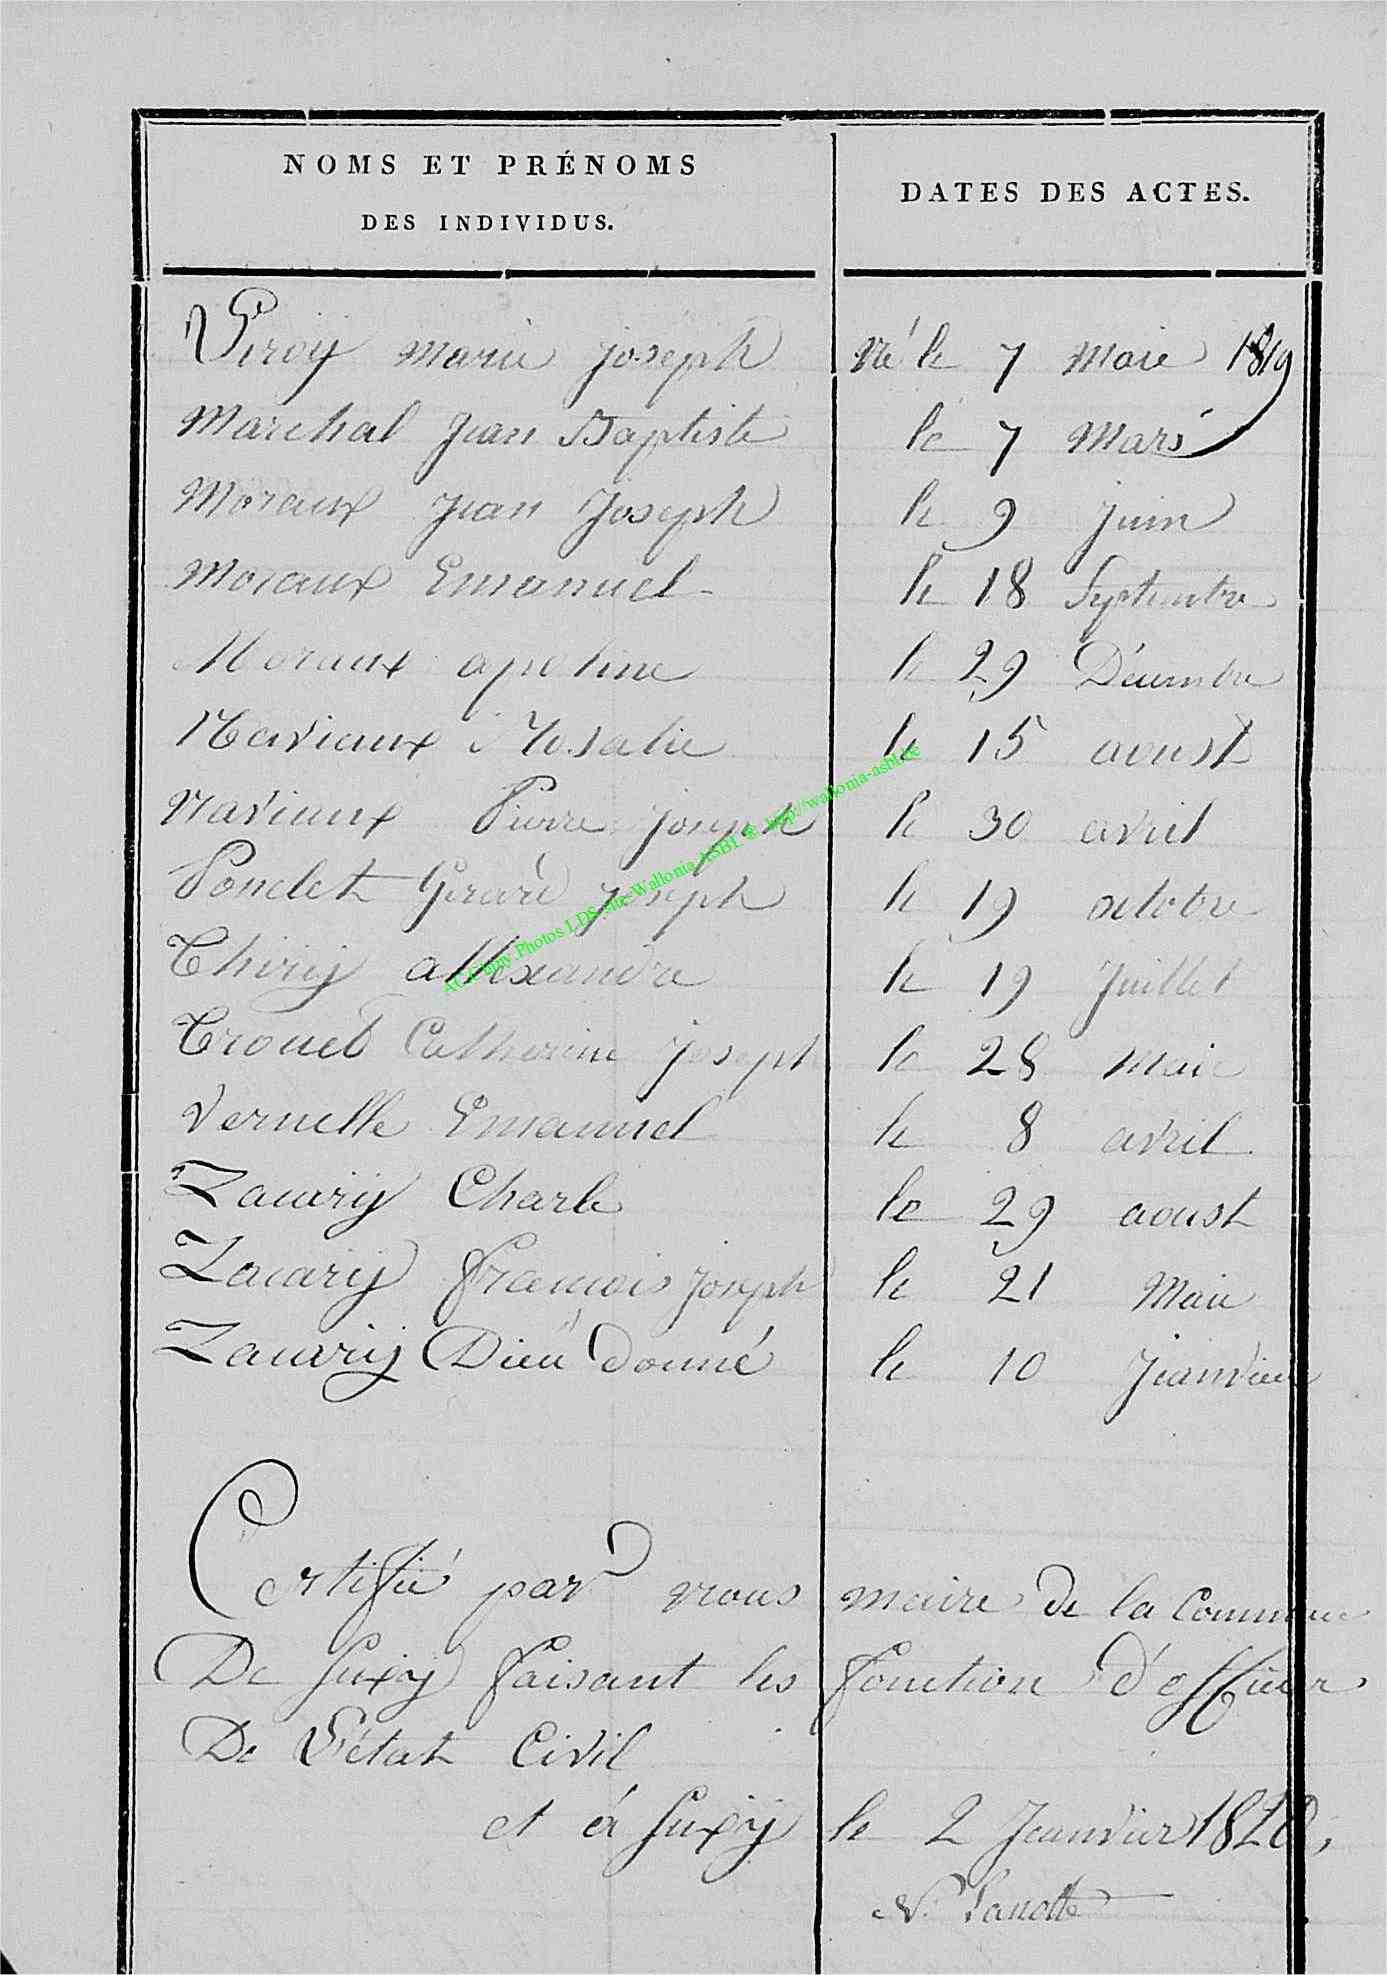 NOMS ET PRÉNOMS
DES INDIVIDUS.
DATES DES ACTES.
Piroy marie joseph né le 7 Maie 1819
Marchal Jean Baptiste le 7 Mars
Moraux Jean Joseph le 9 Juin
Moraux Emanuel le 18 Septembre
Moraux apoline le 29 Décembre
Naviaux Rosalie le 15 aoust
Naviaux Pierre joseph le 30 avril
Poncelet Gerard joseph le 19 octobre
Thiry allexandre le 19 Juillet
Trouet Catherine Joseph le 28 Maie
Vernelle Emanuel le 8 avril
Zacary Charle le 29 aoust
Zacary francois joseph le 21 Maie
Zacary Dieu donné le 10 Jeanvier
Certifié par nous maire de la Commune
De Suxy faisant les fonction d'officier
De L'état Civil
et à Suxy le 2 Jeanvier 1820,
Photos LDS site Wallonia ASBL © http://wallonia-asbl.be